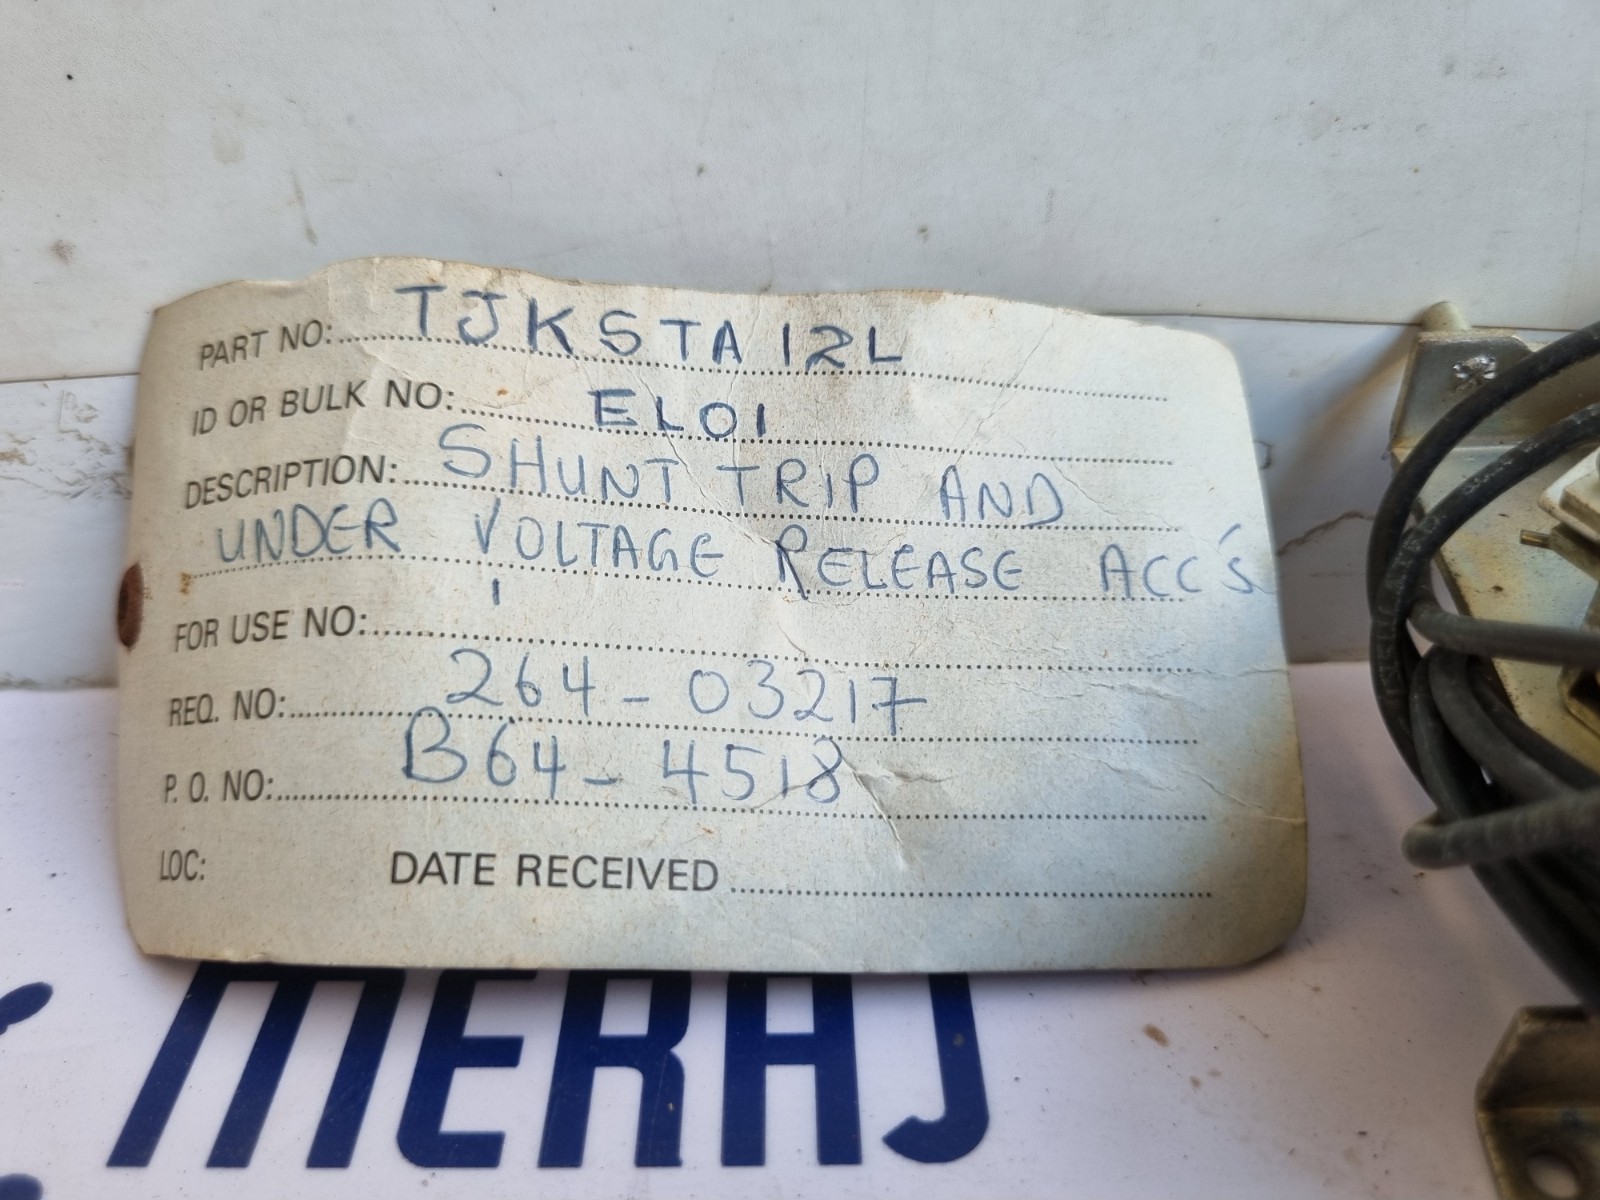 PART NO: TJKSTA12L
ID OR BULK NO: EL01
DESCRIPTION: SHUNT TRIP AND
UNDER VOLTAGE RELEASE ACC'S
FOR USE NO:
REQ. NO: 264-03217
P. O. NO: B64-4518
LOC: DATE RECEIVED
MERAJ